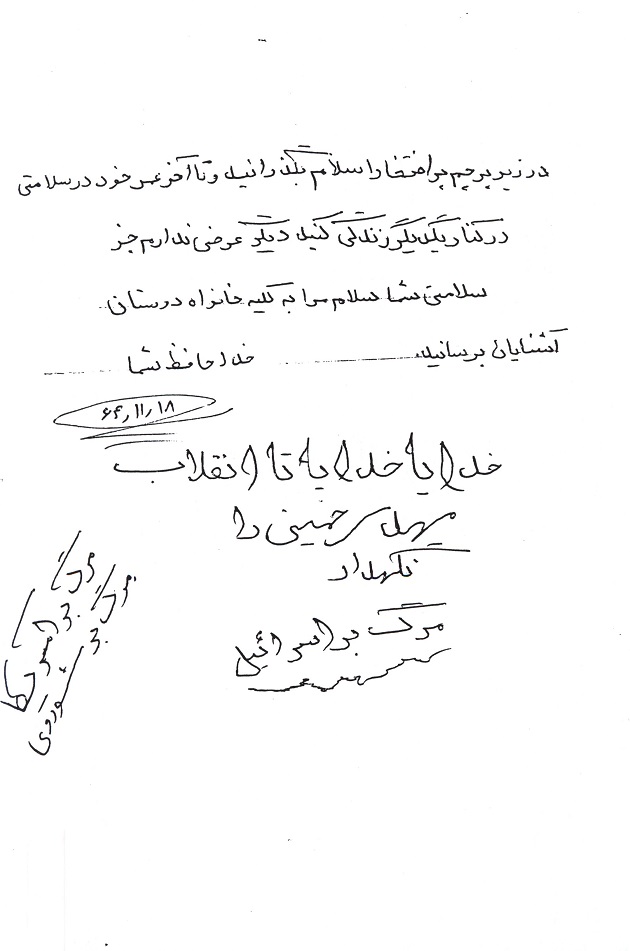 در زیر پرچم پرافتخار اسلام بگذرانید و تا آخر عمر خود در سلامتی
در کنار یکدیگر زندگی کنید دیگر عرضی ندارم جز
سلامتی شما سلام مرا به کلیه خانواه دوستان
آشنایان برسانید خدا حافظ شما
۶۴٫۱۱٫۱۸
خدایا خدایا تا انقلاب
مهدی خمینی را
نگهدار
مرگ بر اسرائیل
مرگ بر آمریکا
مرگ بر شوروی